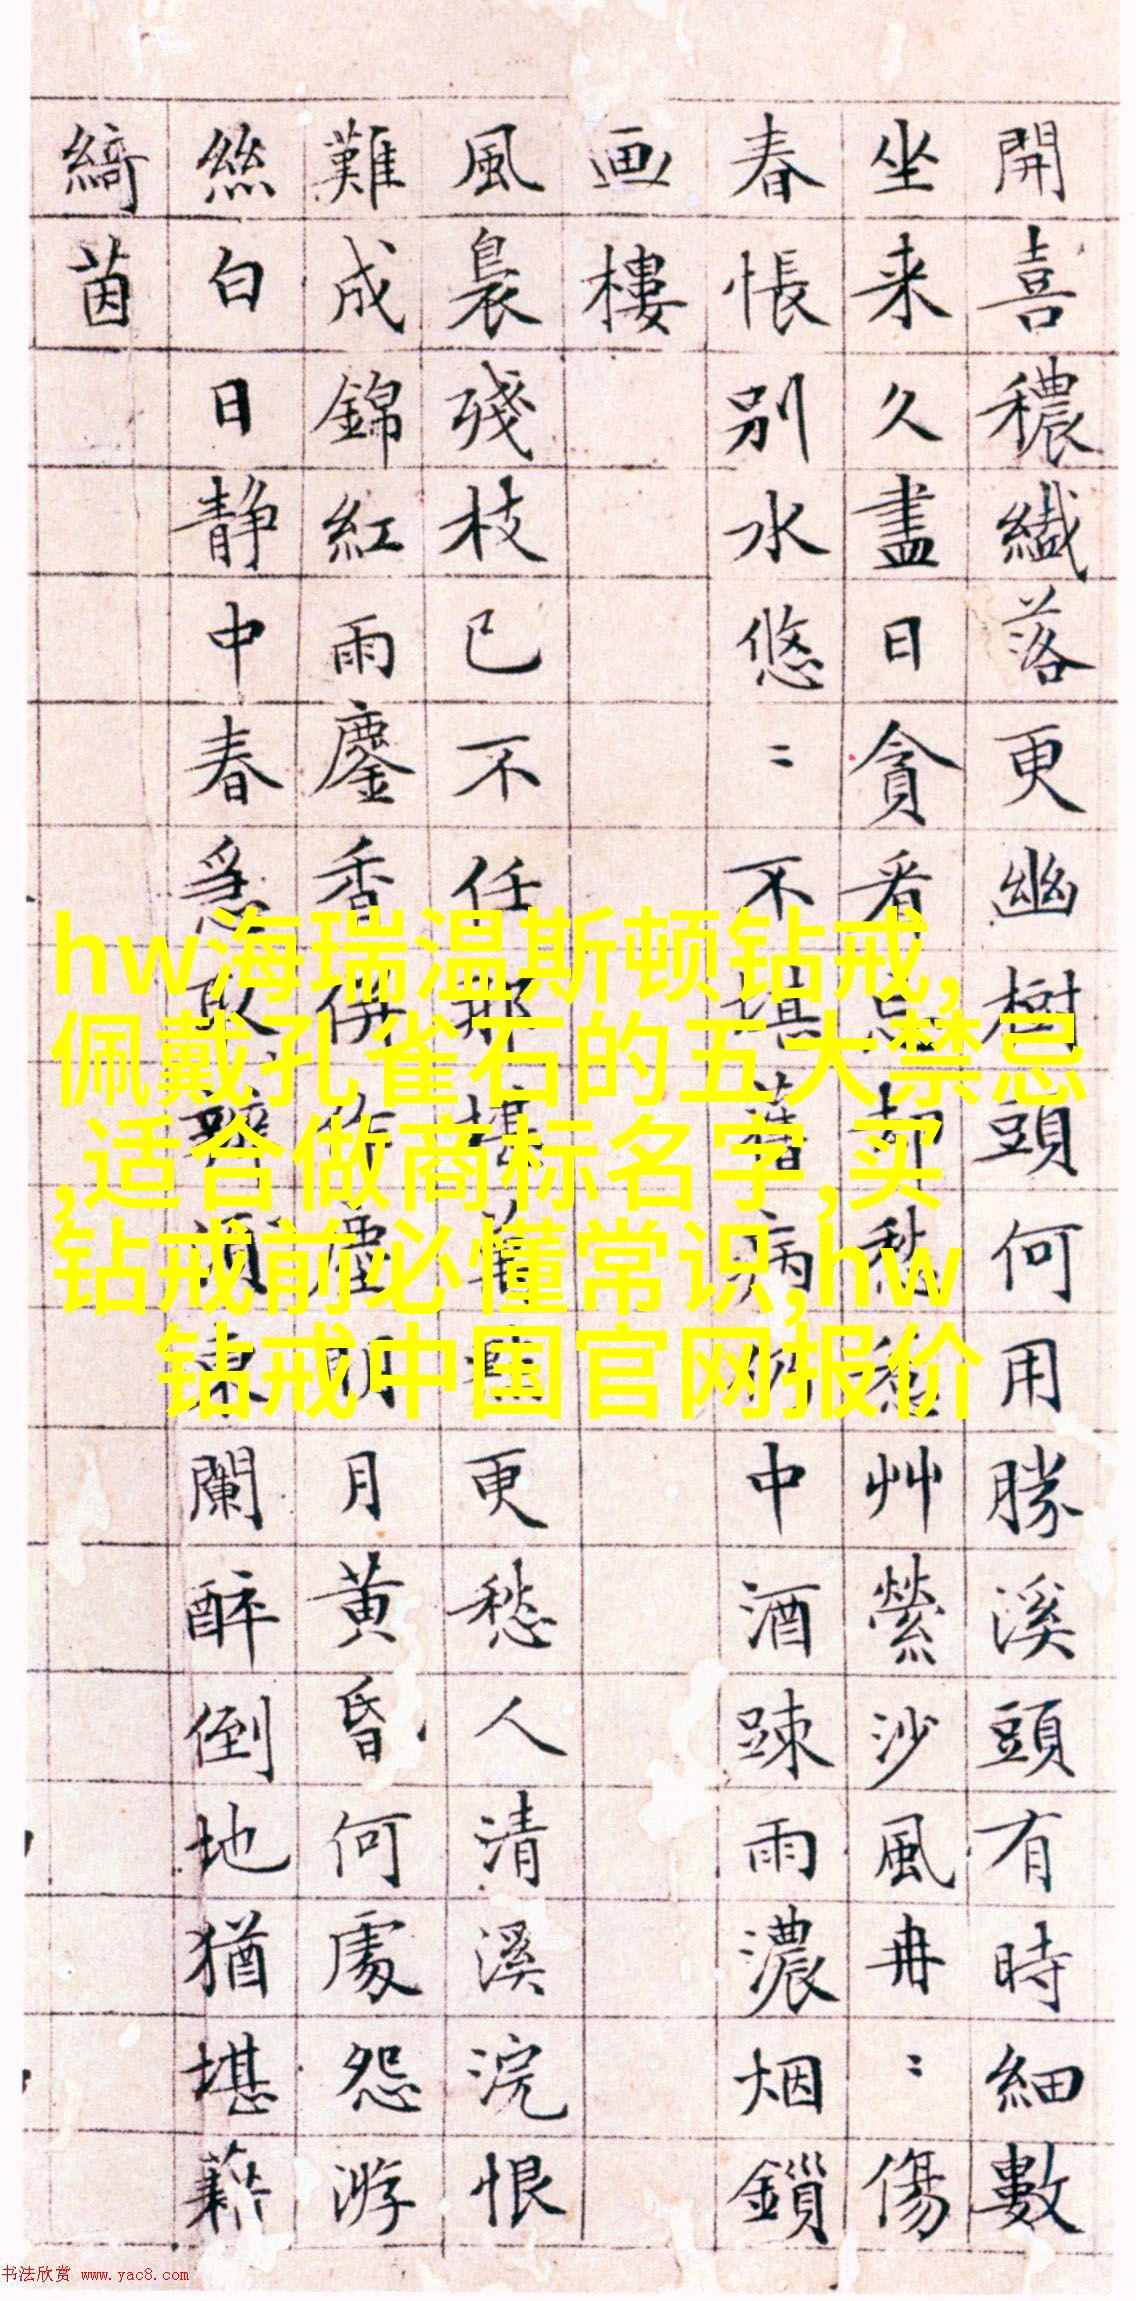 開喜穠纖落更幽樹頭何用勝溪頭有時細數
坐来久盡日貪看忘却愁惹艸縈沙風冉〻傷
春悵別水悠〻不堪著病仍中酒踈雨濃烟鎖
画樓
風裊殘枝已不任那堪萬點更愁人清溪浣恨
難成錦紅雨鏖香併作塵明月黄昏何處怨游
絲白日静中春急東闌醉倒地猶堪藉
綺茵
hw海瑞温斯顿钻戒,
佩戴孔雀石的五大禁忌
,适合做商标名字,买
钻戒前必懂常识,hw
钻戒中国官网报价
书法欣赏 www.yac8.com